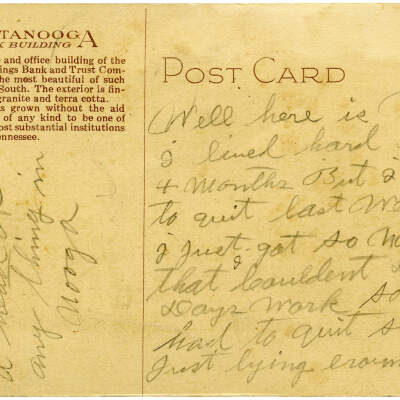 TTANOOGA
K BUILDING
e and office building of the
ings Bank and Trust Com-
he most beautiful of such
South. The exterior is fin-
granite and terra cotta.
as grown without the aid
of any kind to be one of
ost substantial institutions
ennessee.
POST CARD
Well here is
I lived hard
4 Months But I
to quit last
I Just got so
that I Couldent
Days Work so
had to quit s
Just lying eroun
any thing in
Nooga